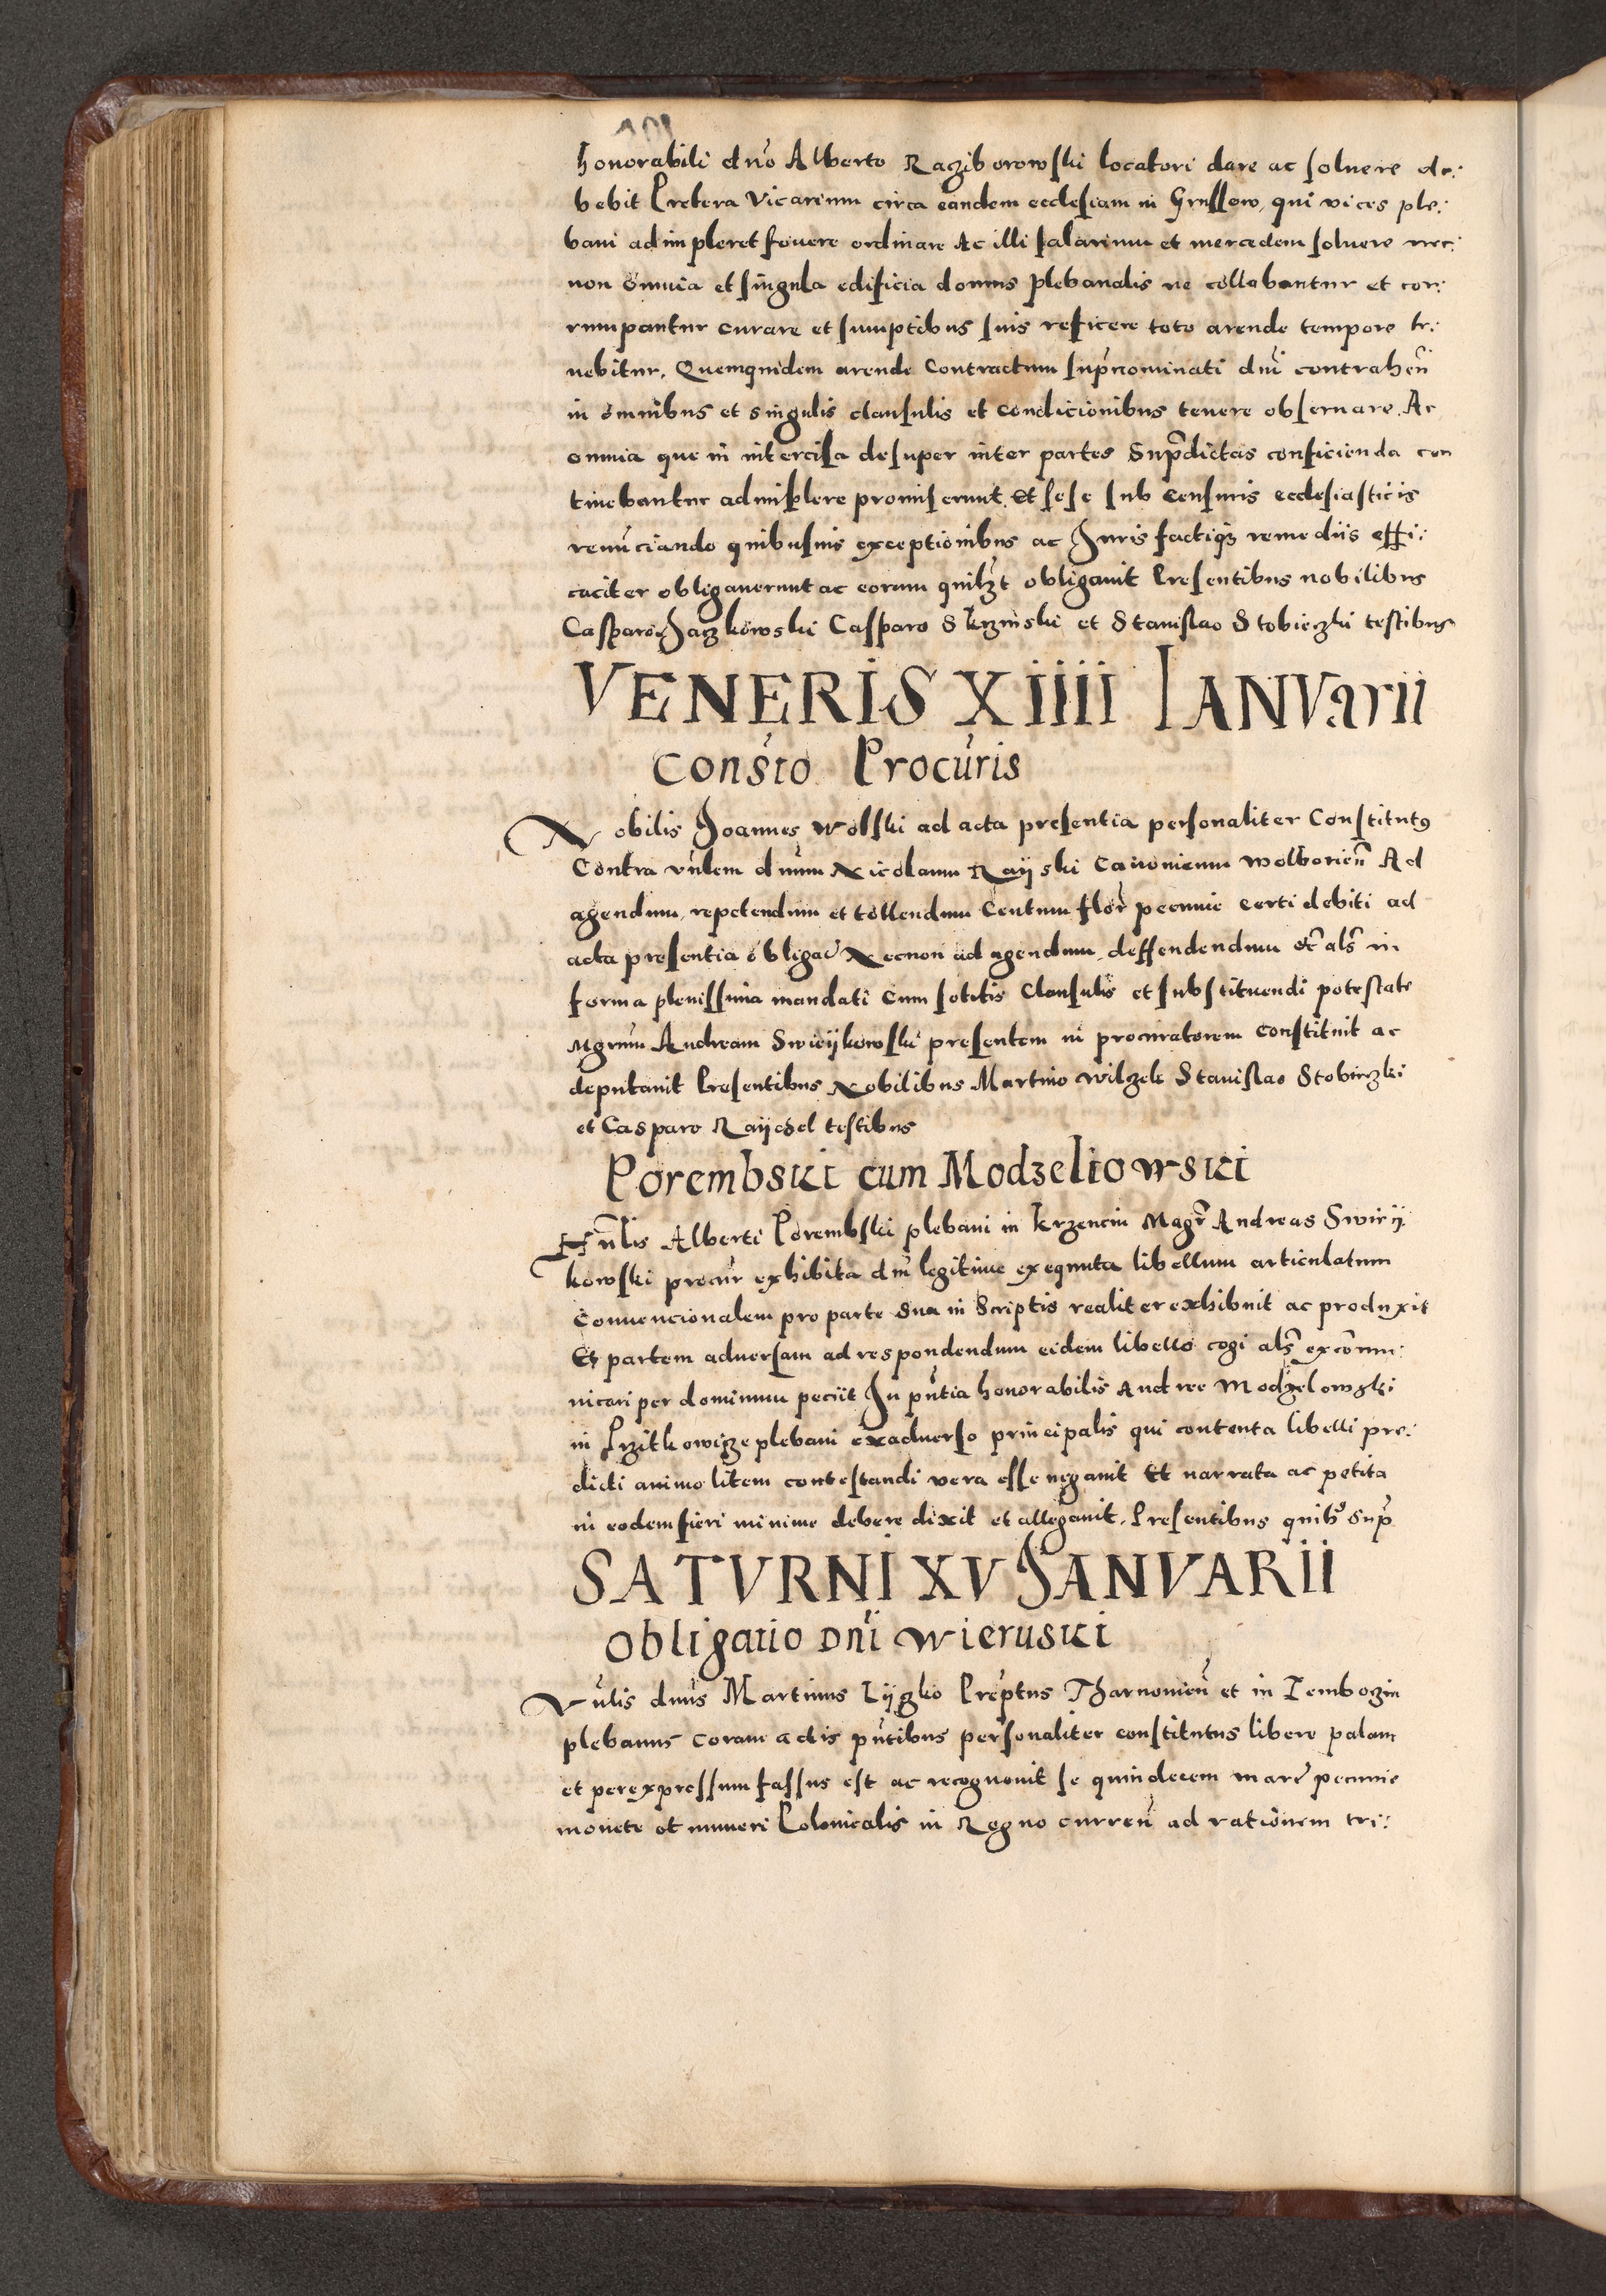 honorabili dno Alberto Raziborowski locatori dare ac soluere de:
bebit Preterea Vicarium circa eandem ecclesiam in Grussow, qui vices ple:
bani adimpleret fouere ordinare Ac illi salarium et mercedem soluere nec:
non omnia et singula edificia domus plebanalis ne collabantur et cor:
rumpantur curare et sumptibus suis reficere toto arende tempore te:
nebitur. Quemquidem arende Contractum supnominati dni contrahen
in omnibus et singulis clausulis et condicionibus tenere obseruare. Ac
omnia que in intercisa desuper inter partes Supdictas conficienda con
tinebantur adimplere promiserunt. Et sese sub Censuris ecclesiasticis
renunciando quibusuis exceptionibus ac Juris factiqz remediis effi:
caciter obligauerunt ac eorum quilzt obligauit Presentibus nobilibus
Casparo Jaczkowski Casparo Skrzinski et Stanislao Stobieczki testibus
VENERIS XIIII IANVarii
Constō Procuris
Nobilis Joannes Wolski ad acta presentia personaliter Constitut9
Contra vnlem dnum Nicolaum Rayski Canonicum Wolborien Ad
agendum, repetendum et tollendum Centum flor pecunie certi debiti ad
acta presentia obligat Necnon ad agendum, deffendendum etc als in
forma plenissima mandati Cum solitis Clausulis et substituendi potestate
Mgrum Andream Swieykowski presentem in procuratorem constituit ac
deputauit Presentibus Nobilibus Martino Wilczek Stanislao Stobieczki
et Casparo Rayczel testibus
Porembski cum Modzeliowski
Hnlis Alberti Porembski plebani in Krzencin Magr Andreas Swiey
kowski procur exhibita dni legitime exequuta libellum articulatum
Conuencionalem pro parte sua in Scriptis realiter exhibuit ac produxit
Et partem aduersam ad respondendum eidem libello cogi als excomu:
nicari per dominum peciit In pntia honorabilis Andree Modzelowski
in Przitkowicze plebani exaduerso principalis qui contenta libelli pre:
dicti animo litem contestandi vera esse negauit Et narrata ac petita
in eodem fieri minime debere dixit et allegauit. Presentibus quib9 sup
SATVRNI XV JANVARII
Obligatio Dni Wieruski
Vnlis dnus Martinus Lyczko Preptus Tharnouien et in Temboczin
plebanus Coram actis pntibus personaliter constitutus libere palam
et per expressum fassus est ac recognouit se quindecem marc pecunie
monete et numeri Polonicalis in Regno curren ad rationem tri: